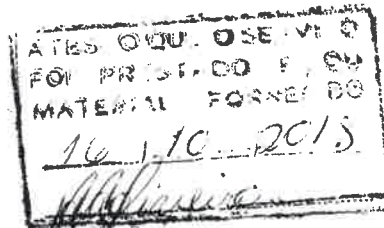 ATESTO QUE O SERVIÇO
FOI PRESTADO E OU
MATERIAL FORNECIDO
16 / 10 2015